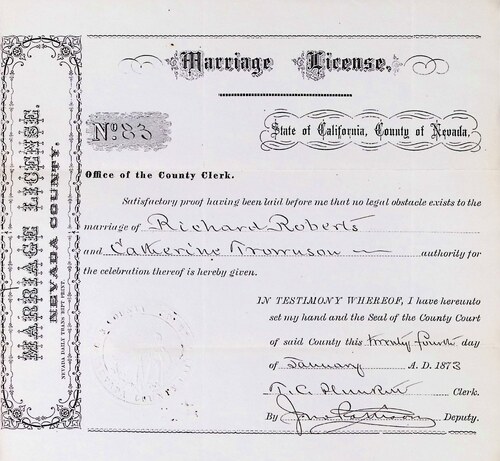 Marriage License,
MARRIAGE LICENSE.
NEVADA COUNTY.
NEVADA DAILY TRANSCRIPT PRINT.
No. 83
State of California, County of Nevada.
Office of the County Clerk.
Satisfactory proof having been laid before me that no legal obstacle exists to the
marriage of Richard Roberts
and Catherine authority for
the celebration thereof is hereby given.
IN TESTIMONY WHEREOF, I have hereunto
set my hand and the Seal of the County Court
of said County this twenty fourth day
of January A. D. 1873
T. C. Plunkett Clerk.
By Deputy.